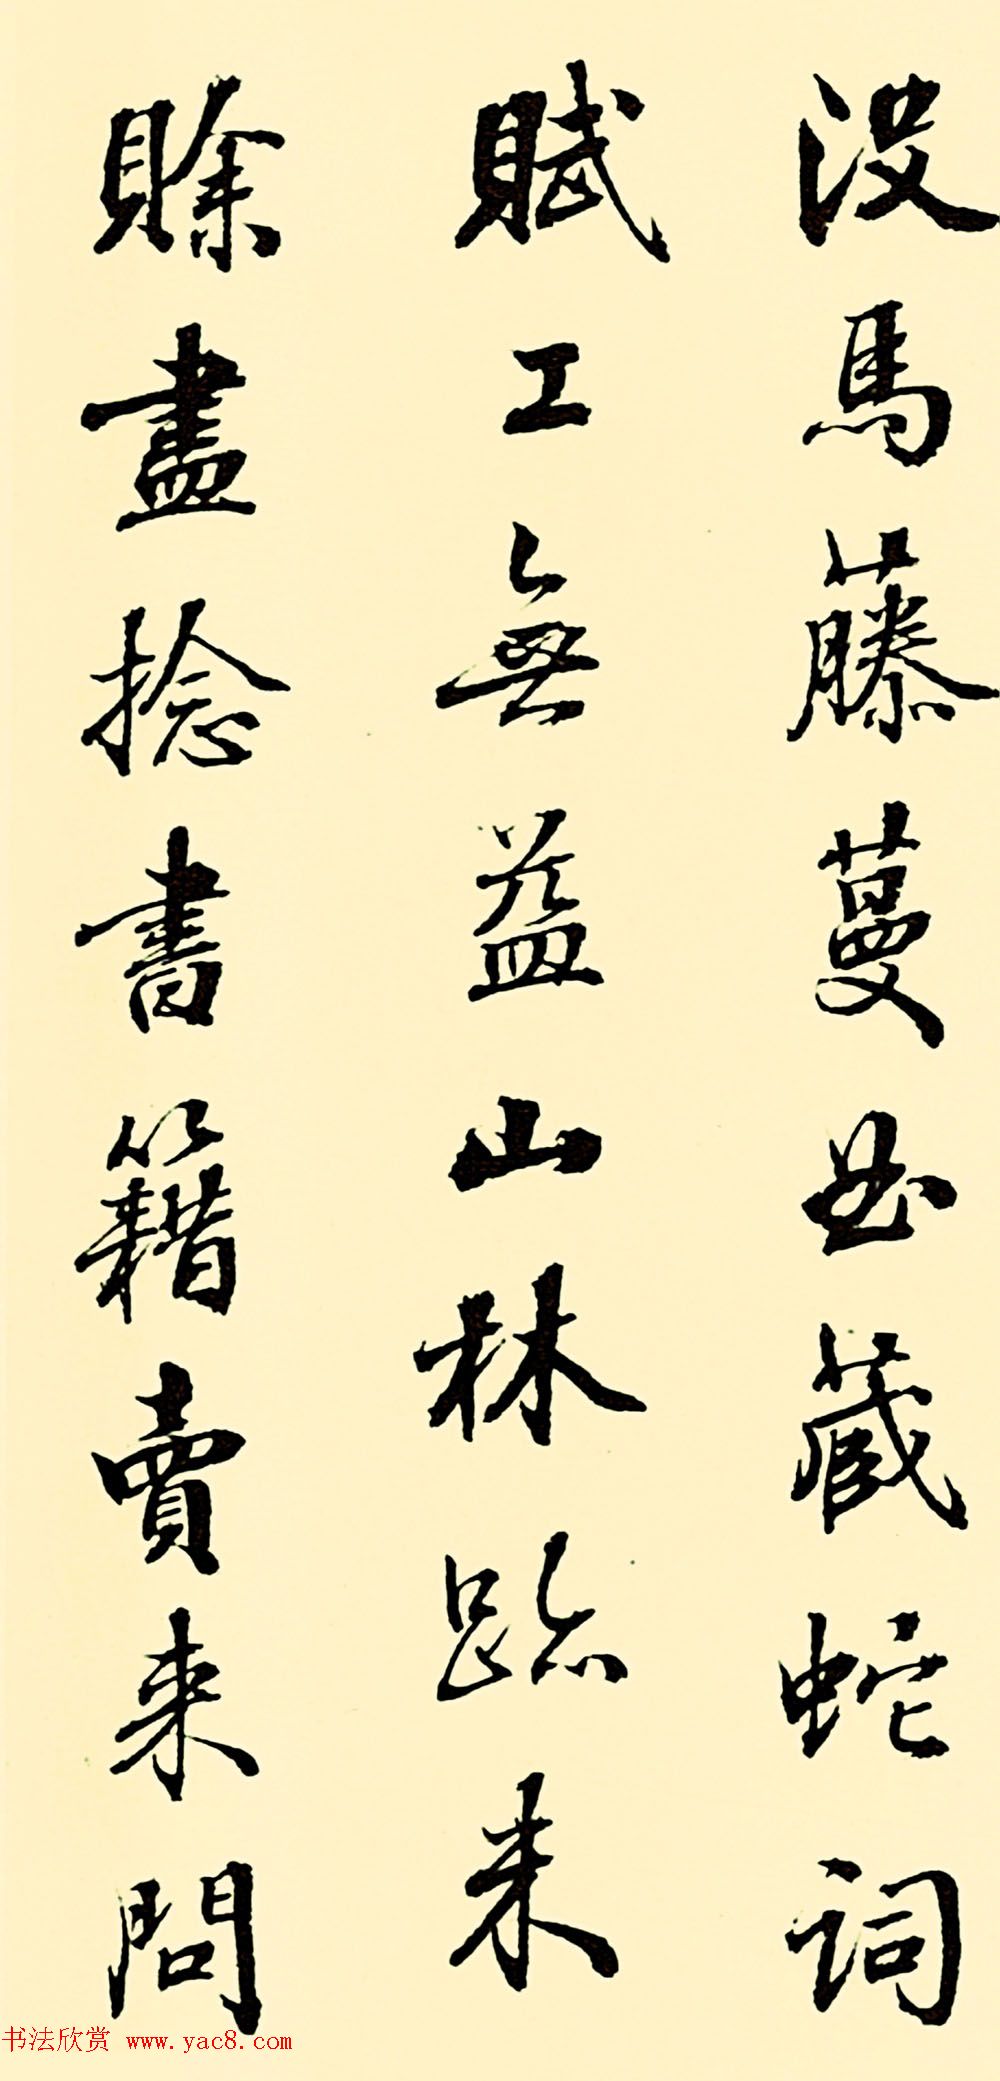 没馬藤蔓曲藏蛇詞
賦工無益山林跡未
賖盡捻書籍賣来問
书法欣赏 www.yac8.com